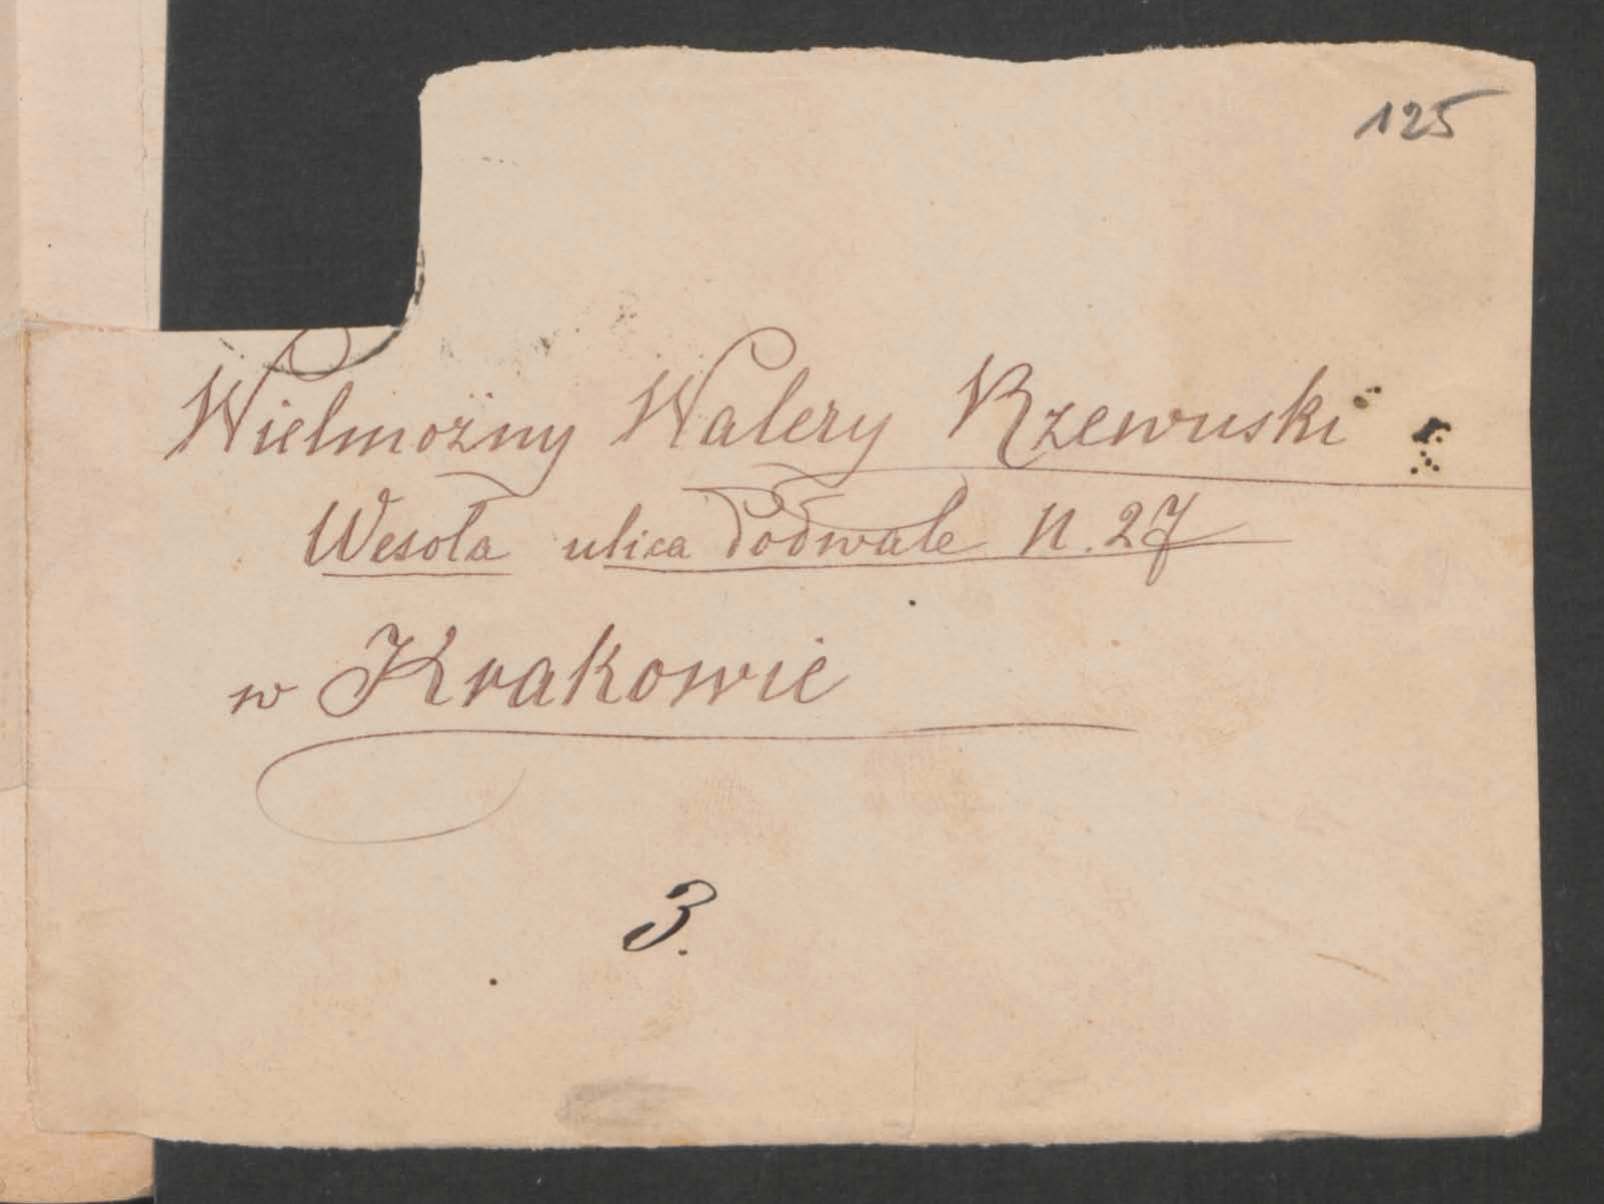 125
Wielmożny Walery Rzewuski
Wesoła ulica Podwale N. 27
w Krakowie
3.